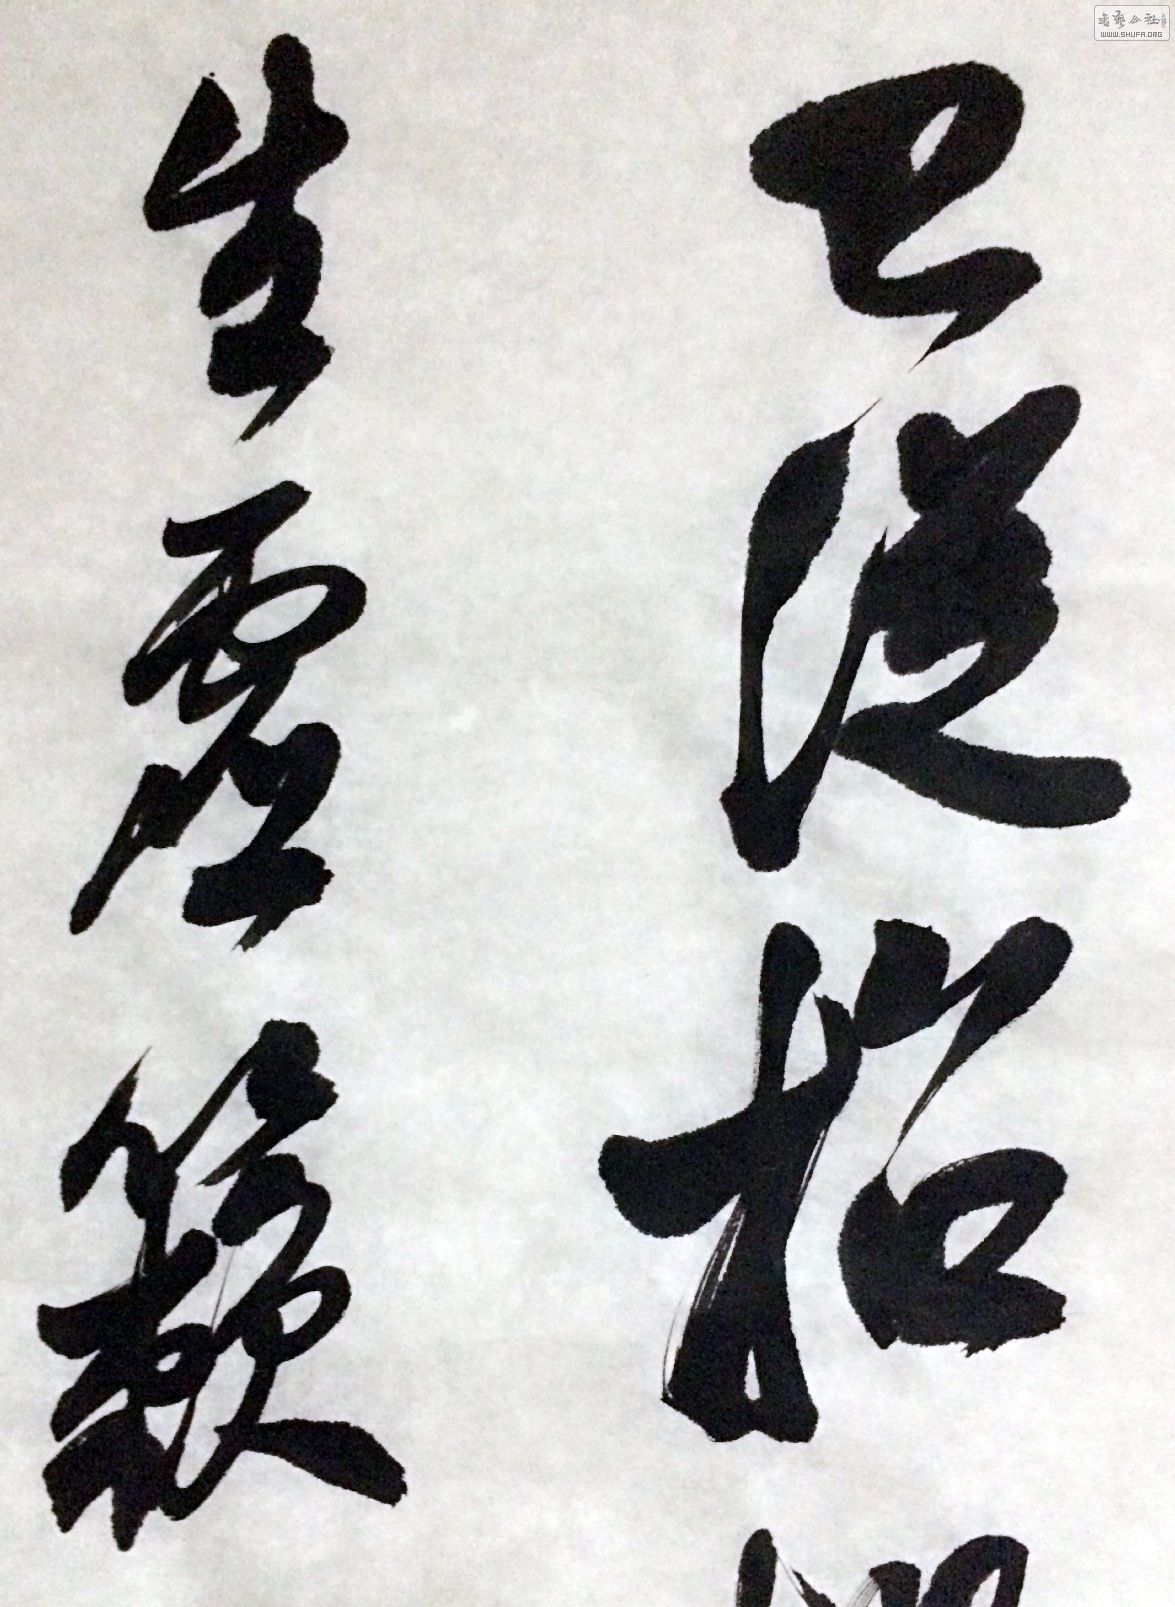 已從招
生虛籟
書藝公社
WWW.SHUFA.ORG